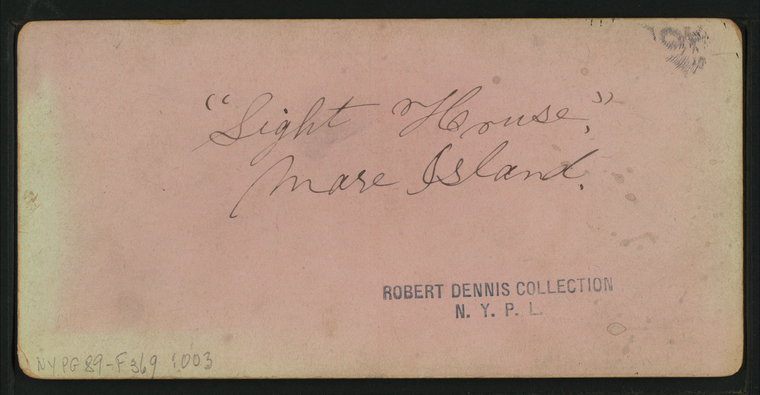 "Light House,"
Mare Island.
ROBERT DENNIS COLLECTION
N. Y. P. L.
NYPG 89-F369 1.003